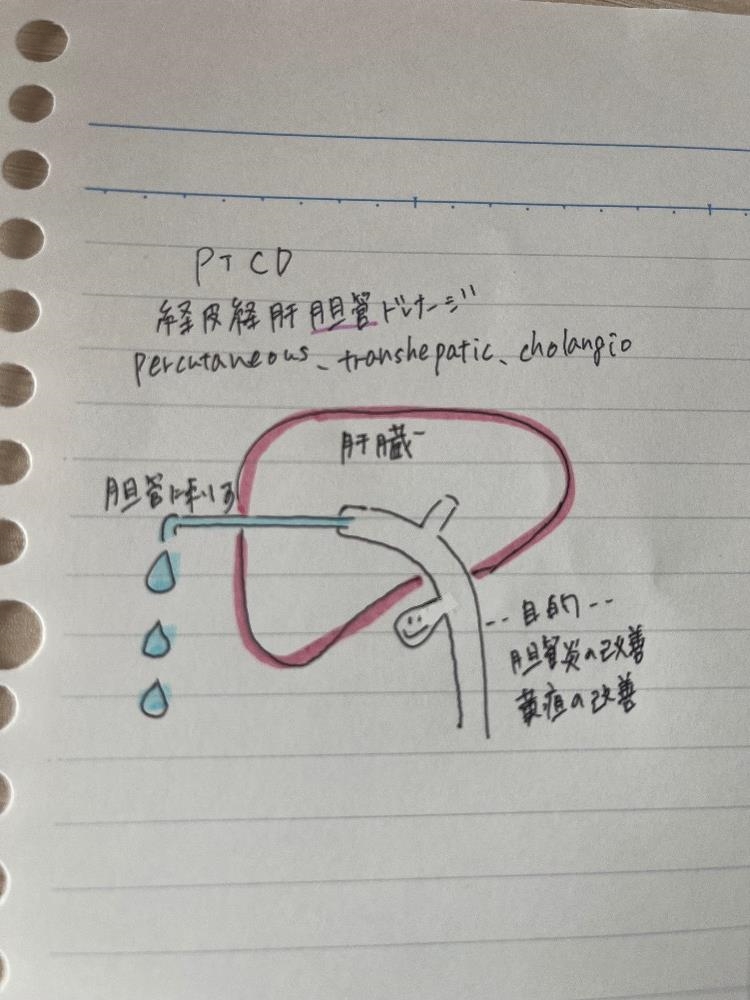 PTCD
経皮経肝胆管ドレナージ
percutaneous、transhepatic、cholangio
肝臓
胆管に刺す
--目的--
胆管炎の改善
黄疸の改善